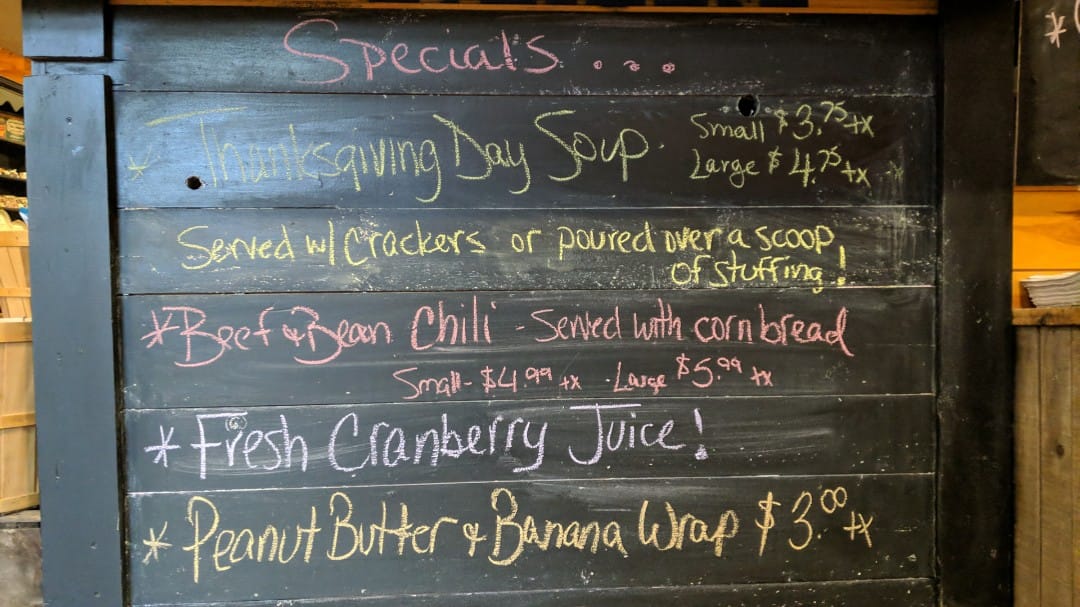 Special's . . .
* Thanksgiving Day Soup. Small $3.75 +x
Large $4.75 +x
Served w/ Crackers or poured over a scoop
of stuffing!
* Beef & Bean Chili - Served with cornbread
Small - $4.99 +x - Large $5.99 +x
* Fresh Cranberry Juice!
* Peanut Butter & Banana Wrap $3.00 +x